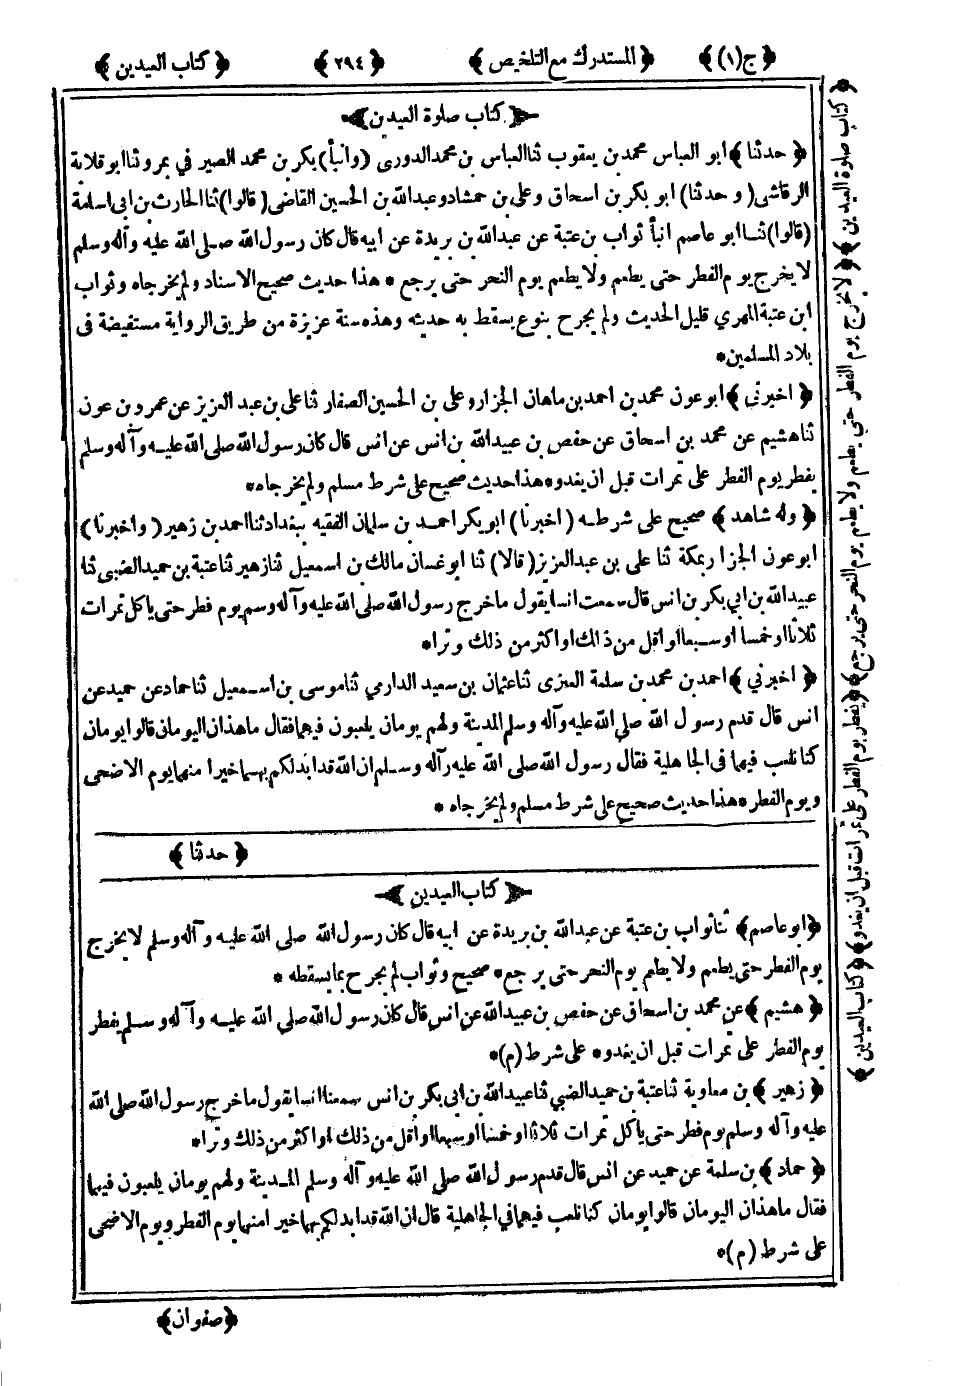 ﴿ج(١)﴾ ﴿المستدرك مع التلخيص﴾ ﴿٢٩٤﴾ ﴿كتاب العيدين﴾
﴿كتاب صلوة العيدين﴾
﴿حدثنا﴾ ابو العباس محمد بن يعقوب ثنا العباس بن محمد الدورى (وانبأ) بكر بن محمد الصير في بمرو ثنا ابو قلابة
الرقاشي (وحدثنا) ابو بكر بن اسحاق وعلي بن حمشاد وعبد الله بن الحسين القاضي (قالوا) ثنا الحارث بن ابى اسامة
(قالوا) ثنا ابو عاصم انبأ ثواب بن عتبة عن عبد الله بن بريدة عن ابيه قال كان رسول الله صلى الله عليه وآله وسلم
لا يخرج يوم الفطر حتى يطعم ولا يطعم يوم النحر حتى يرجع * هذا حديث صحيح الاسناد ولم يخرجاه وثواب
ابن عتبة المهري قليل الحديث ولم يجرح بنوع يسقط به حديثه وهذه سنة عزيزة من طريق الرواية مستفيضة فى
بلاد المسلمين*
﴿اخبرني﴾ ابو عون محمد بن احمد بن ماهان الجزار وعلى بن الحسين الصفار ثنا علي بن عبد العزيز عن عمرو بن عون
ثنا هشيم عن محمد بن اسحاق عن حفص بن عبيد الله بن انس عن انس قال كان رسول الله صلى الله عليه وآله وسلم
يفطر يوم الفطر على تمرات قبل ان يغدو * هذا حديث صحيح على شرط مسلم ولم يخرجاه*
﴿وله شاهد﴾ صحيح على شرطه (اخبرنا) ابو بكر احمد بن سلمان الفقيه ببغداد ثنا احمد بن زهير (واخبرنا)
ابو عون الجزار بمكة ثنا على بن عبد العزيز (قالا) ثنا ابو غسان مالك بن اسمعيل ثنا زهير ثنا عتبة بن حميد الضبي ثنا
عبيد الله بن ابي بكر بن انس قال سمعت انسا يقول ما خرج رسول الله صلى الله عليه وآله وسم يوم فطر حتى ياكل تمرات
ثلاثا او خمسا او سبعا او اقل من ذالك او اكثر من ذلك وترا*
﴿اخبرني﴾ احمد بن محمد بن سلمة العنزى ثنا عثمان بن سعيد الدارمي ثنا موسى بن اسمعيل ثنا حماد عن حميد عن
انس قال قدم رسول الله صلى الله عليه وآله وسلم المدينة ولهم يومان يلعبون فيهما فقال ما هذان اليومان قالوا يومان
كنا نلعب فيهما فى الجاهلية فقال رسول الله صلى الله عليه رآله وسلم ان الله قد ابدلكم بهما خيرا منهما يوم الاضحى
ويوم الفطر * هذا حديث صحيح على شرط مسلم ولم يخرجاه *
﴿حدثنا﴾
﴿كتاب العيدين﴾
﴿ابو عاصم﴾ ثنا ثواب بن عتبة عن عبد الله بن بريدة عن ابيه قال كان رسول الله صلى الله عليه وآله وسلم لا يخرج
يوم الفطر حتى يطعم ولا يطعم يوم النحر حتى يرجع * صحيح وثواب لم يجرح بما يسقطه *
﴿هشيم﴾ عن محمد بن اسحاق عن حفص بن عبيد الله عن انس قال كان رسول الله صلى الله عليه وآله وسلم يفطر
يوم الفطر على تمرات قبل ان يغدو * على شرط (م)*
﴿زهير﴾ بن معاوية ثنا عتبة بن حميد الضبي ثنا عبيد الله بن ابى بكر بن انس سمعنا انسا يقول ما خرج رسول الله صلى الله
عليه وآله وسلم يوم فطر حتى ياكل تمرات ثلاثا او خمسا او سبعا او اقل من ذلك او اكثر من ذلك وترا*
﴿حماد﴾ بن سلمة عن حميد عن انس قال قدم رسول الله صلى الله عليه وآله وسلم المدينة ولهم يومان يلعبون فيهما
فقال ما هذان اليومان قالوا يومان كنا نلعب فيهما في الجاهلية قال ان الله قد ابدلكم بهما خيرا منهما يوم الفطر ويوم الاضحى
على شرط (م)*
﴿صفوان﴾
﴿كتاب صلوة العيدين﴾ ﴿لا يخرج يوم الفطر حتى يطعم ولا يطعم يوم النحر حتى يرجع﴾ ﴿يفطر يوم الفطر على تمرات قبل ان يغدو﴾ ﴿كتاب العيدين﴾